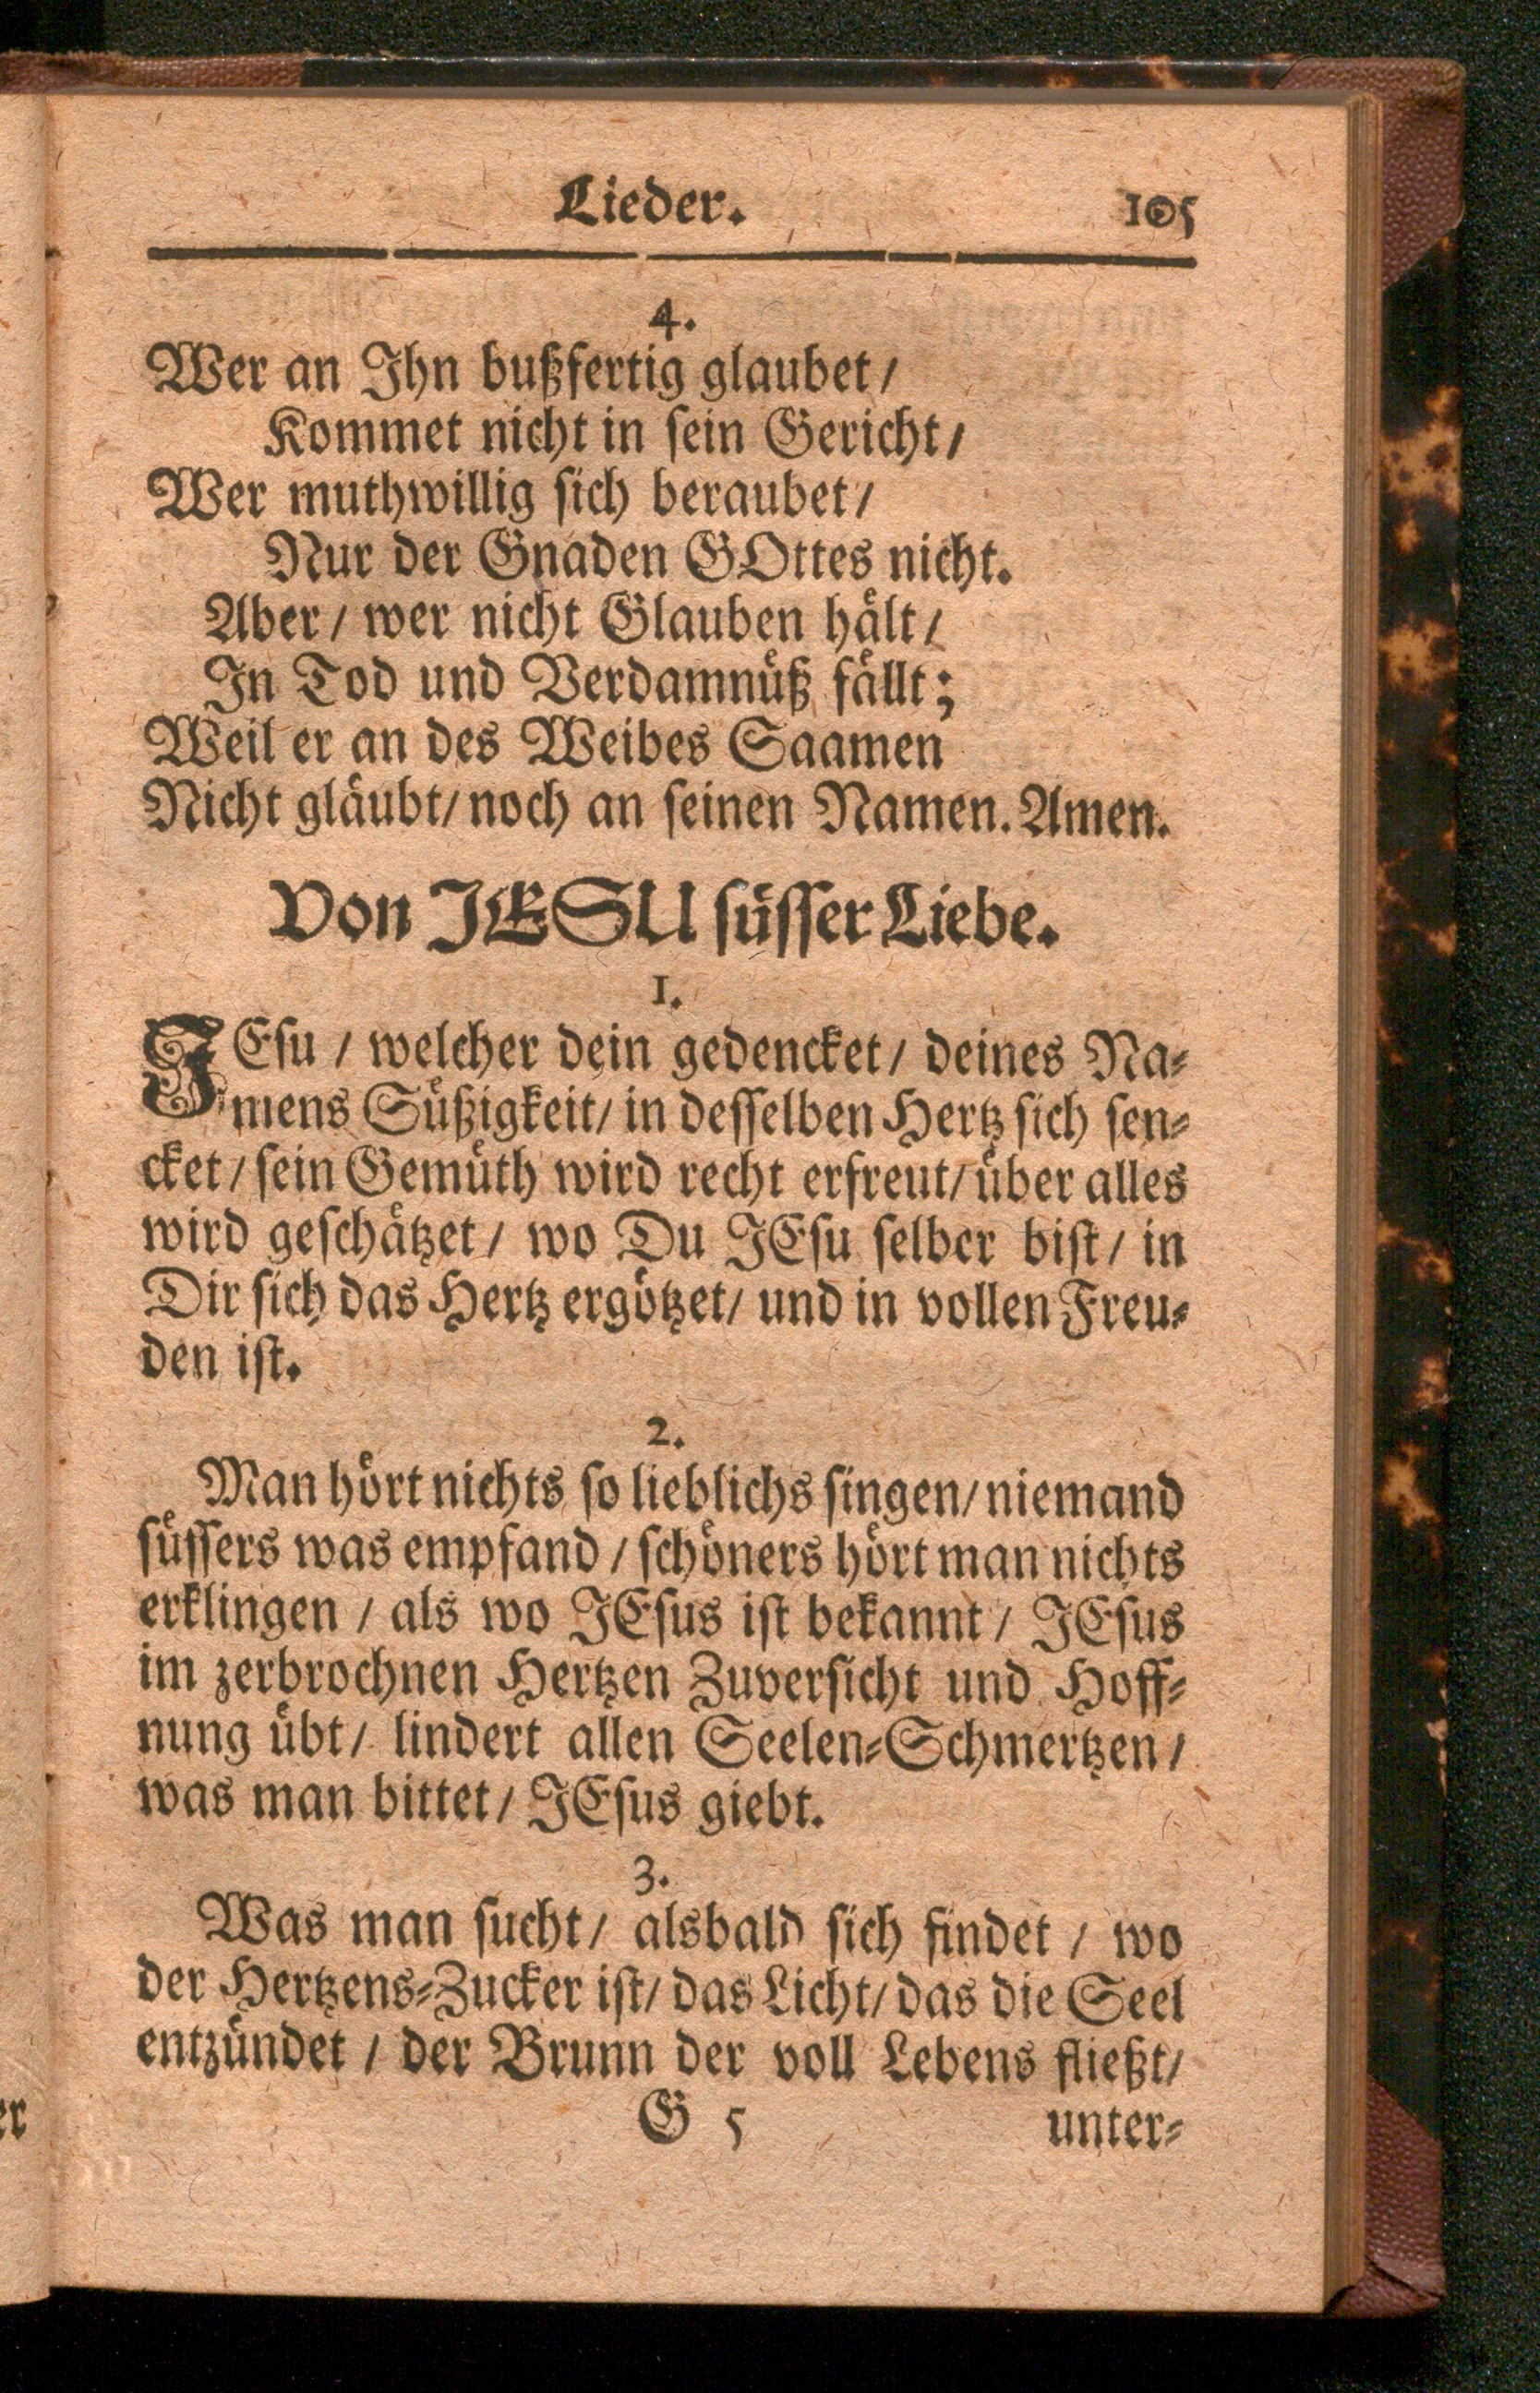 Lieder. 105
4.
Wer an Ihn bußfertig glaubet/
Kommet nicht in sein Gericht/
Wer muthwillig sich beraubet/
Nur der Gnaden GOttes nicht.
Aber/ wer nicht Glauben hält/
In Tod und Verdamnüß fällt;
Weil er an des Weibes Saamen
Nicht gläubt/ noch an seinen Namen. Amen.
Von JESU süsser Liebe.
1.
JEsu / welcher dein gedencket/ deines Na-
mens Süßigkeit/ in desselben Hertz sich sen-
cket/ sein Gemüth wird recht erfreut/ über alles
wird geschätzet/ wo Du JEsu selber bist/ in
Dir sich das Hertz ergötzet/ und in vollen Freu-
den ist.
2.
Man hört nichts so lieblichs singen/ niemand
süssers was empfand / schöners hört man nichts
erklingen / als wo JEsus ist bekannt / JEsus
im zerbrochnen Hertzen Zuversicht und Hoff-
nung übt/ lindert allen Seelen-Schmertzen/
was man bittet/ JEsus giebt.
3.
Was man sucht/ alsbald sich findet / wo
der Hertzens-Zucker ist/ das Licht/ das die Seel
entzündet / der Brunn der voll Lebens fließt/
G 5 unter-
er